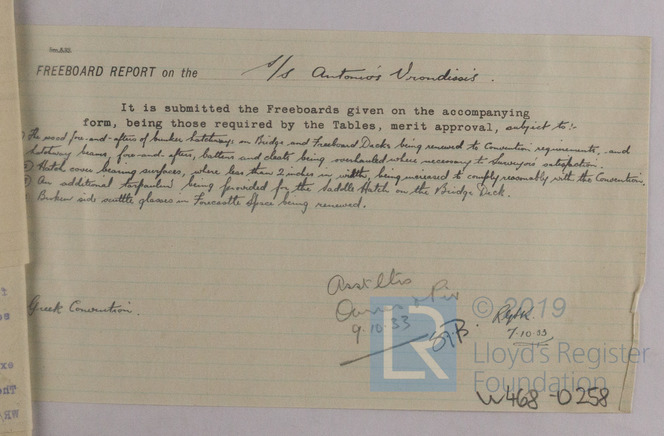 FREEBOARD REPORT on the s/s Antonios Vrondissis.
It is submitted the Freeboards given on the accompanying
form, being those required by the Tables, merit approval, subject to:-
The wood fore-and-afters of bunker hatchways on Bridge and Freeboard Decks being renewed to Convention requirements, and
hatchway beams, fore-and-afters, battens and cleats being overhauled where necessary to Surveyors' satisfaction.
Hatch cover bearing surfaces, where less than 2 inches in width, being increased to comply reasonably with the Convention.
An additional tarpaulin being provided for the saddle Hatch on the Bridge Deck.
Broken side scuttle glasses in Forecastle Space being renewed.
Asst
Owners & Pir
9.10.33
Greek Convention.
7.10.33
© 2019
LR
Lloyd's Register
Foundation
W468-0258